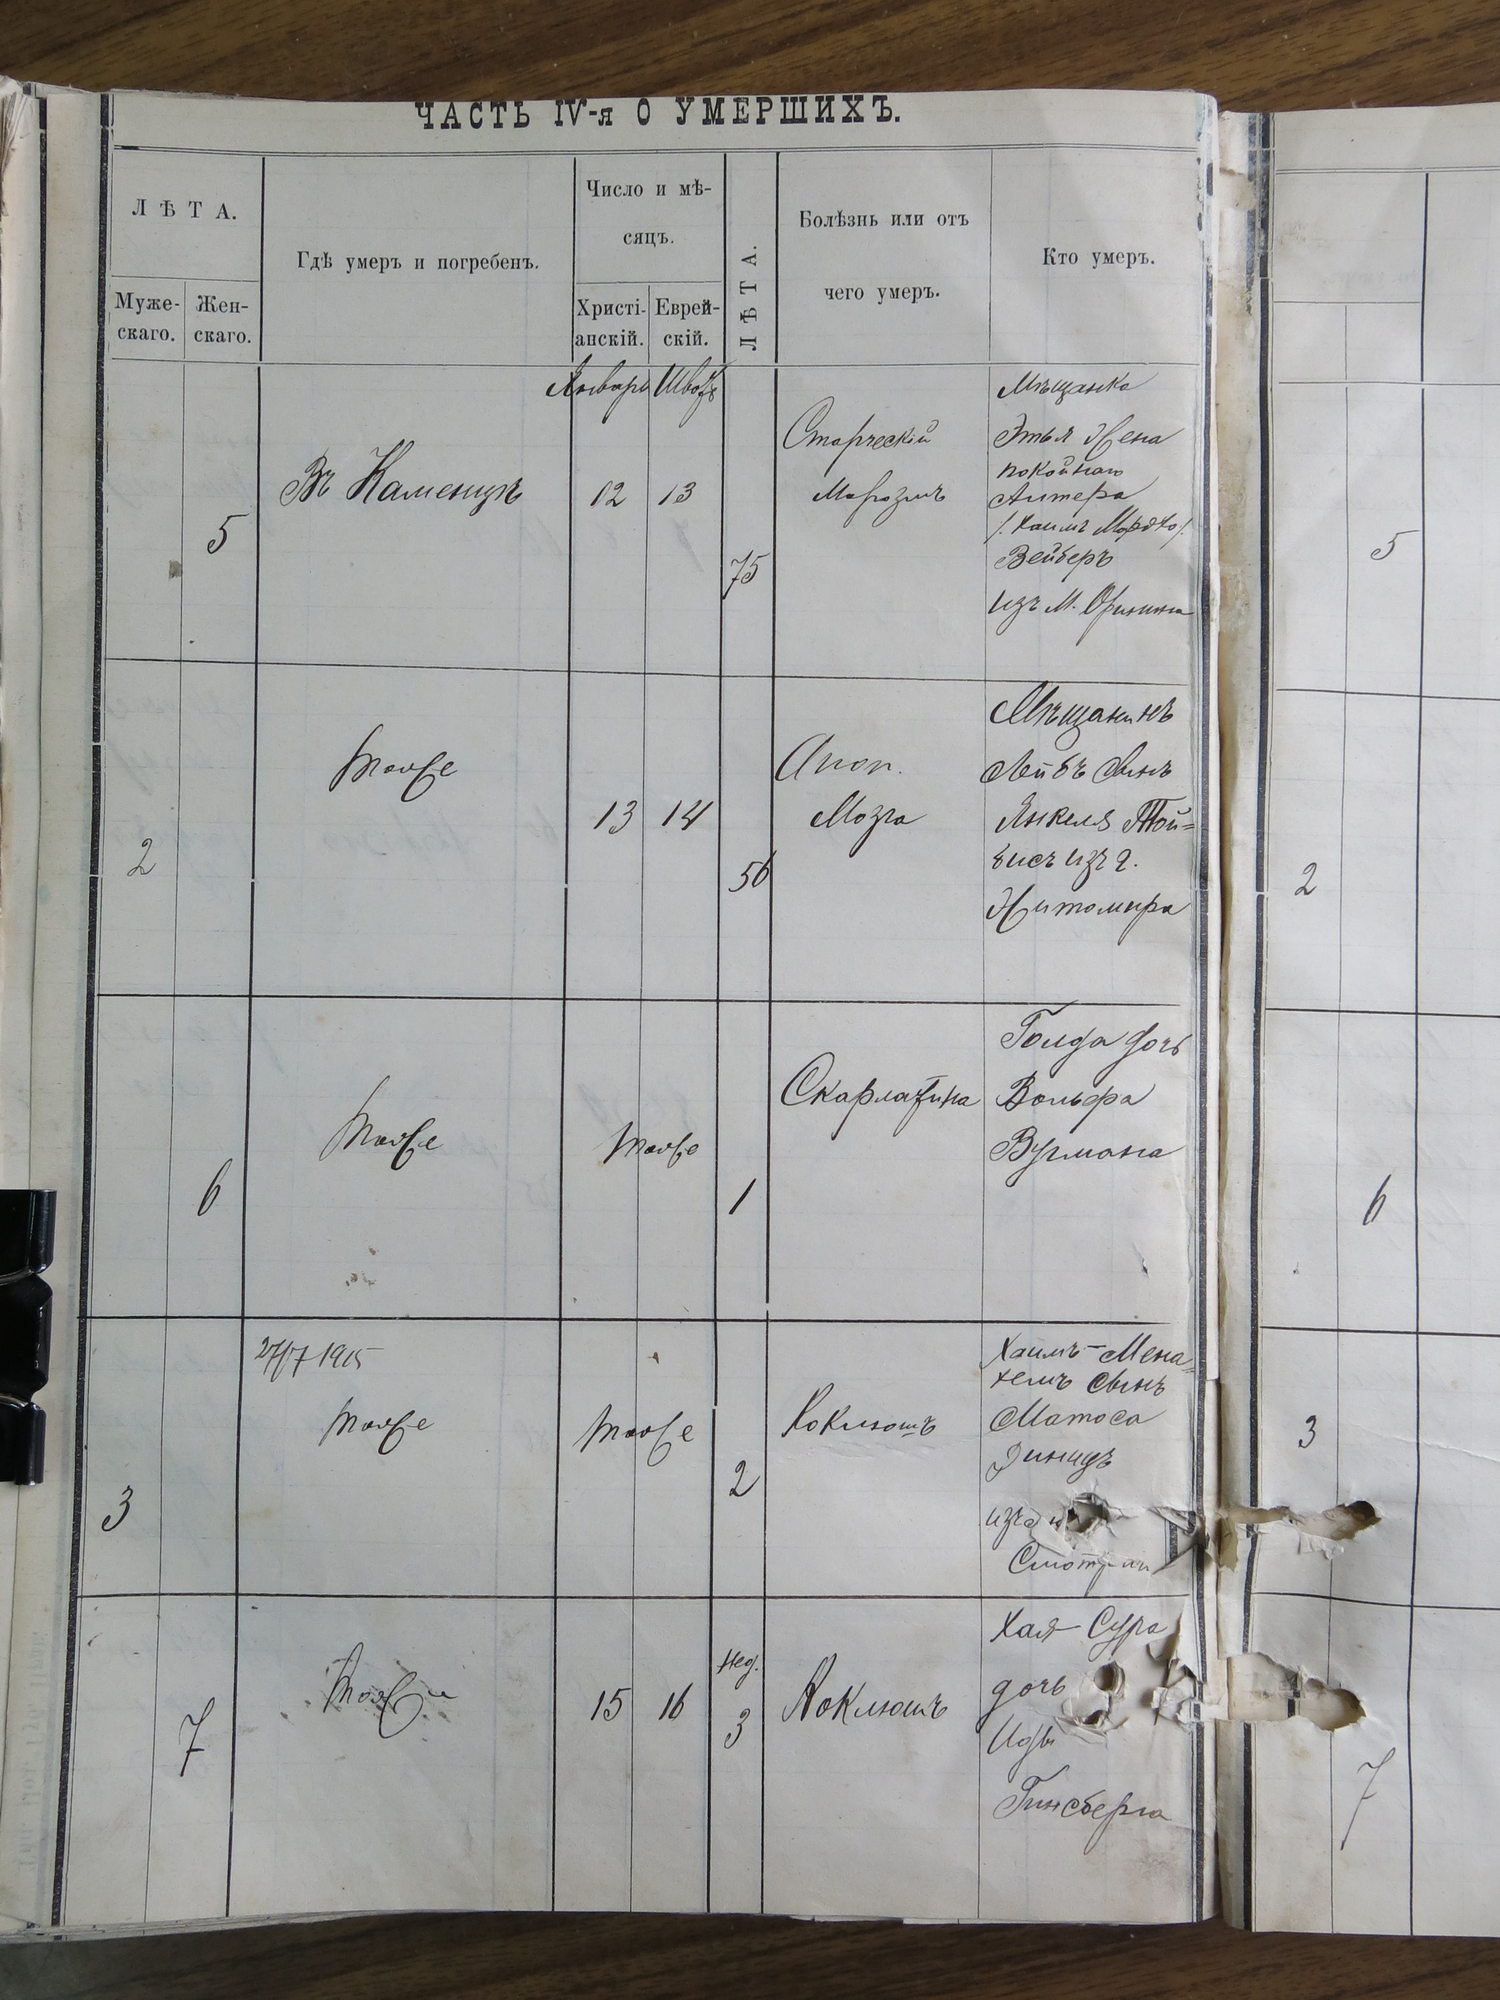 ЧАСТЬ IV-я О УМЕРШИХЪ.
ЛѢТА.
Муже-
скаго.
Жен-
скаго.
Гдѣ умеръ и погребенъ.
Число и мѣ-
сяцъ.
Христі-
анскій.
Еврей-
скій.
ЛѢТА.
Болѣзнь или отъ
чего умеръ.
Кто умеръ.
Январь Шватъ
5
Въ Каменцѣ
12 13
75
Старческій
Маразмъ
Мѣщанка
Этля Жена
покойнаго
Антера
/: Хаимъ Мордко :/
Вейберъ
изъ М. Оринина
5
2
тоже
13 14
56
Апоп.
Мозга
Мѣщанинъ
Лейбъ сынъ
Янкеля Той=
бисъ изъ г.
Житомира
2
6
тоже
тоже
1
Скарлатина
Голда дочь
Вольфа
Вугмана
6
27/7 1915
3
тоже
тоже
2
Коклюшъ
Хаимъ-Мена=
хемъ сынъ
Матоса
Зиницъ
изъ
3
7
тоже
15 16
Нед.
3
Коклюшъ
Хая-Сура
дочь
Иды
Гинсберга
7